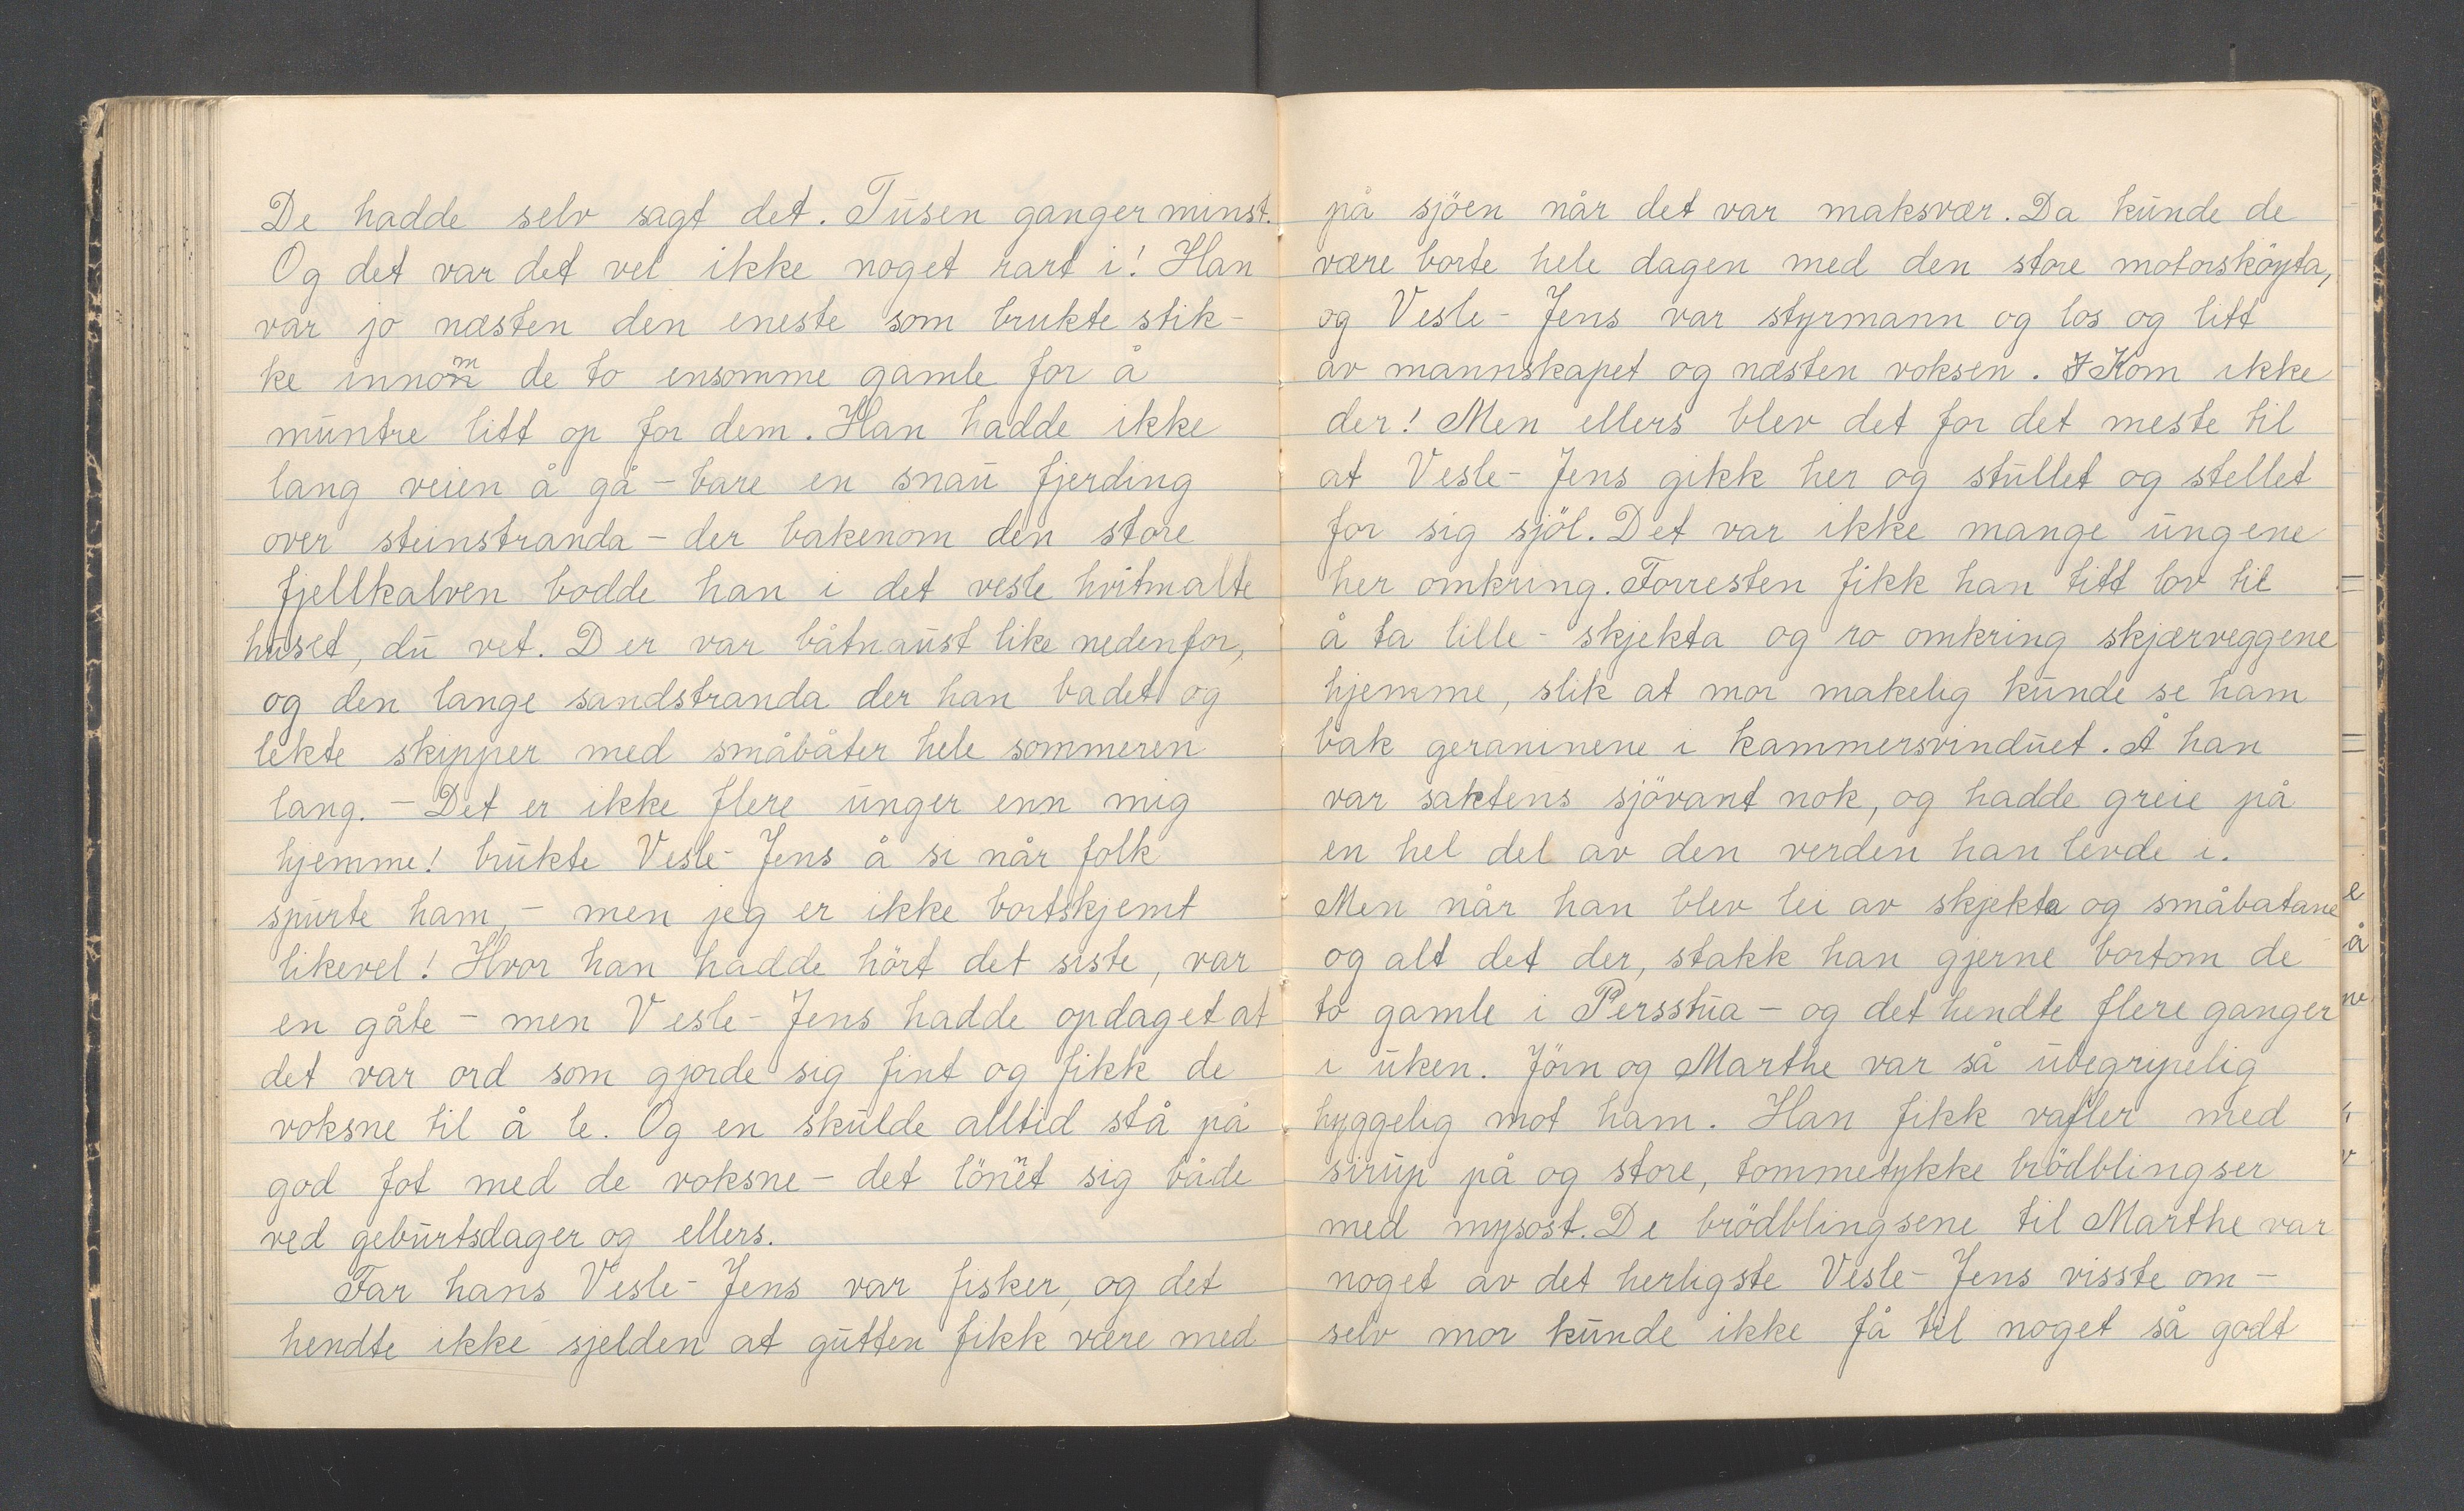 De hadde selv sagt det. Tusen ganger minst.
Og det var det vel ikke noget rart i! Han
var jo næsten den eneste som brukte stik-
ke innom de to ensomme gamle for å
muntre litt op for dem. Han hadde ikke
lang veien å gå - bare en snau fjerding
over steinstranda - der bakenom den store
fjellkalven bodde han i det vesle hvitmalte
huset, du vet. Der var båtnaust like nedenfor,
og den lange sandstranda der han badet og
lekte skipper med småbåter hele sommeren
lang. - Det er ikke flere unger enn mig
hjemme! brukte Vesle-Jens å si når folk
spurte ham, - men jeg er ikke bortskjemt
likevel! Hvor han hadde hört det siste, var
en gåte - men Vesle-Jens hadde opdaget at
det var ord som gjorde sig fint og fikk de
voksne til å le. Og en skulde alltid stå på
god fot med de voksne - det lönnet sig både
ved geburtsdager og ellers.
Far hans Vesle-Jens var fisker, og det
hendte ikke sjelden at gutten fikk være med
på sjöen når det var maksvær. Da kunde de
være borte hele dagen med den store motorsköyta,
og Vesle-Jens var styrmann og los og litt
av mannskapet og næsten voksen. Kom ikke
der! Men ellers blev det for det meste til
at Vesle-Jens gikk her og stullet og stellet
for sig sjöl. Det var ikke mange ungene
her omkring. Forresten fikk han titt lov til
å ta lille-skjekta og ro omkring skjærveggene
hjemme, slik at mor makelig kunde se ham
bak geraninene i kammersvinduet. Å han
var saktens sjövant nok, og hadde greie på
en hel del av den verden han levde i.
Men når han blev lei av skjekta og småbatane
og alt det der, stakk han gjerne bortom de
to gamle i Persstua - og det hendte flere ganger
i uken. Jörn og Marthe var så ubegripelig
hyggelig mot ham. Han fikk vafler med
sirup på og store, tommetykke brödblingser
med mysost. De brödblingsene til Marthe var
noget av det herligste Vesle-Jens visste om -
selv mor kunde ikke få til noget så godt